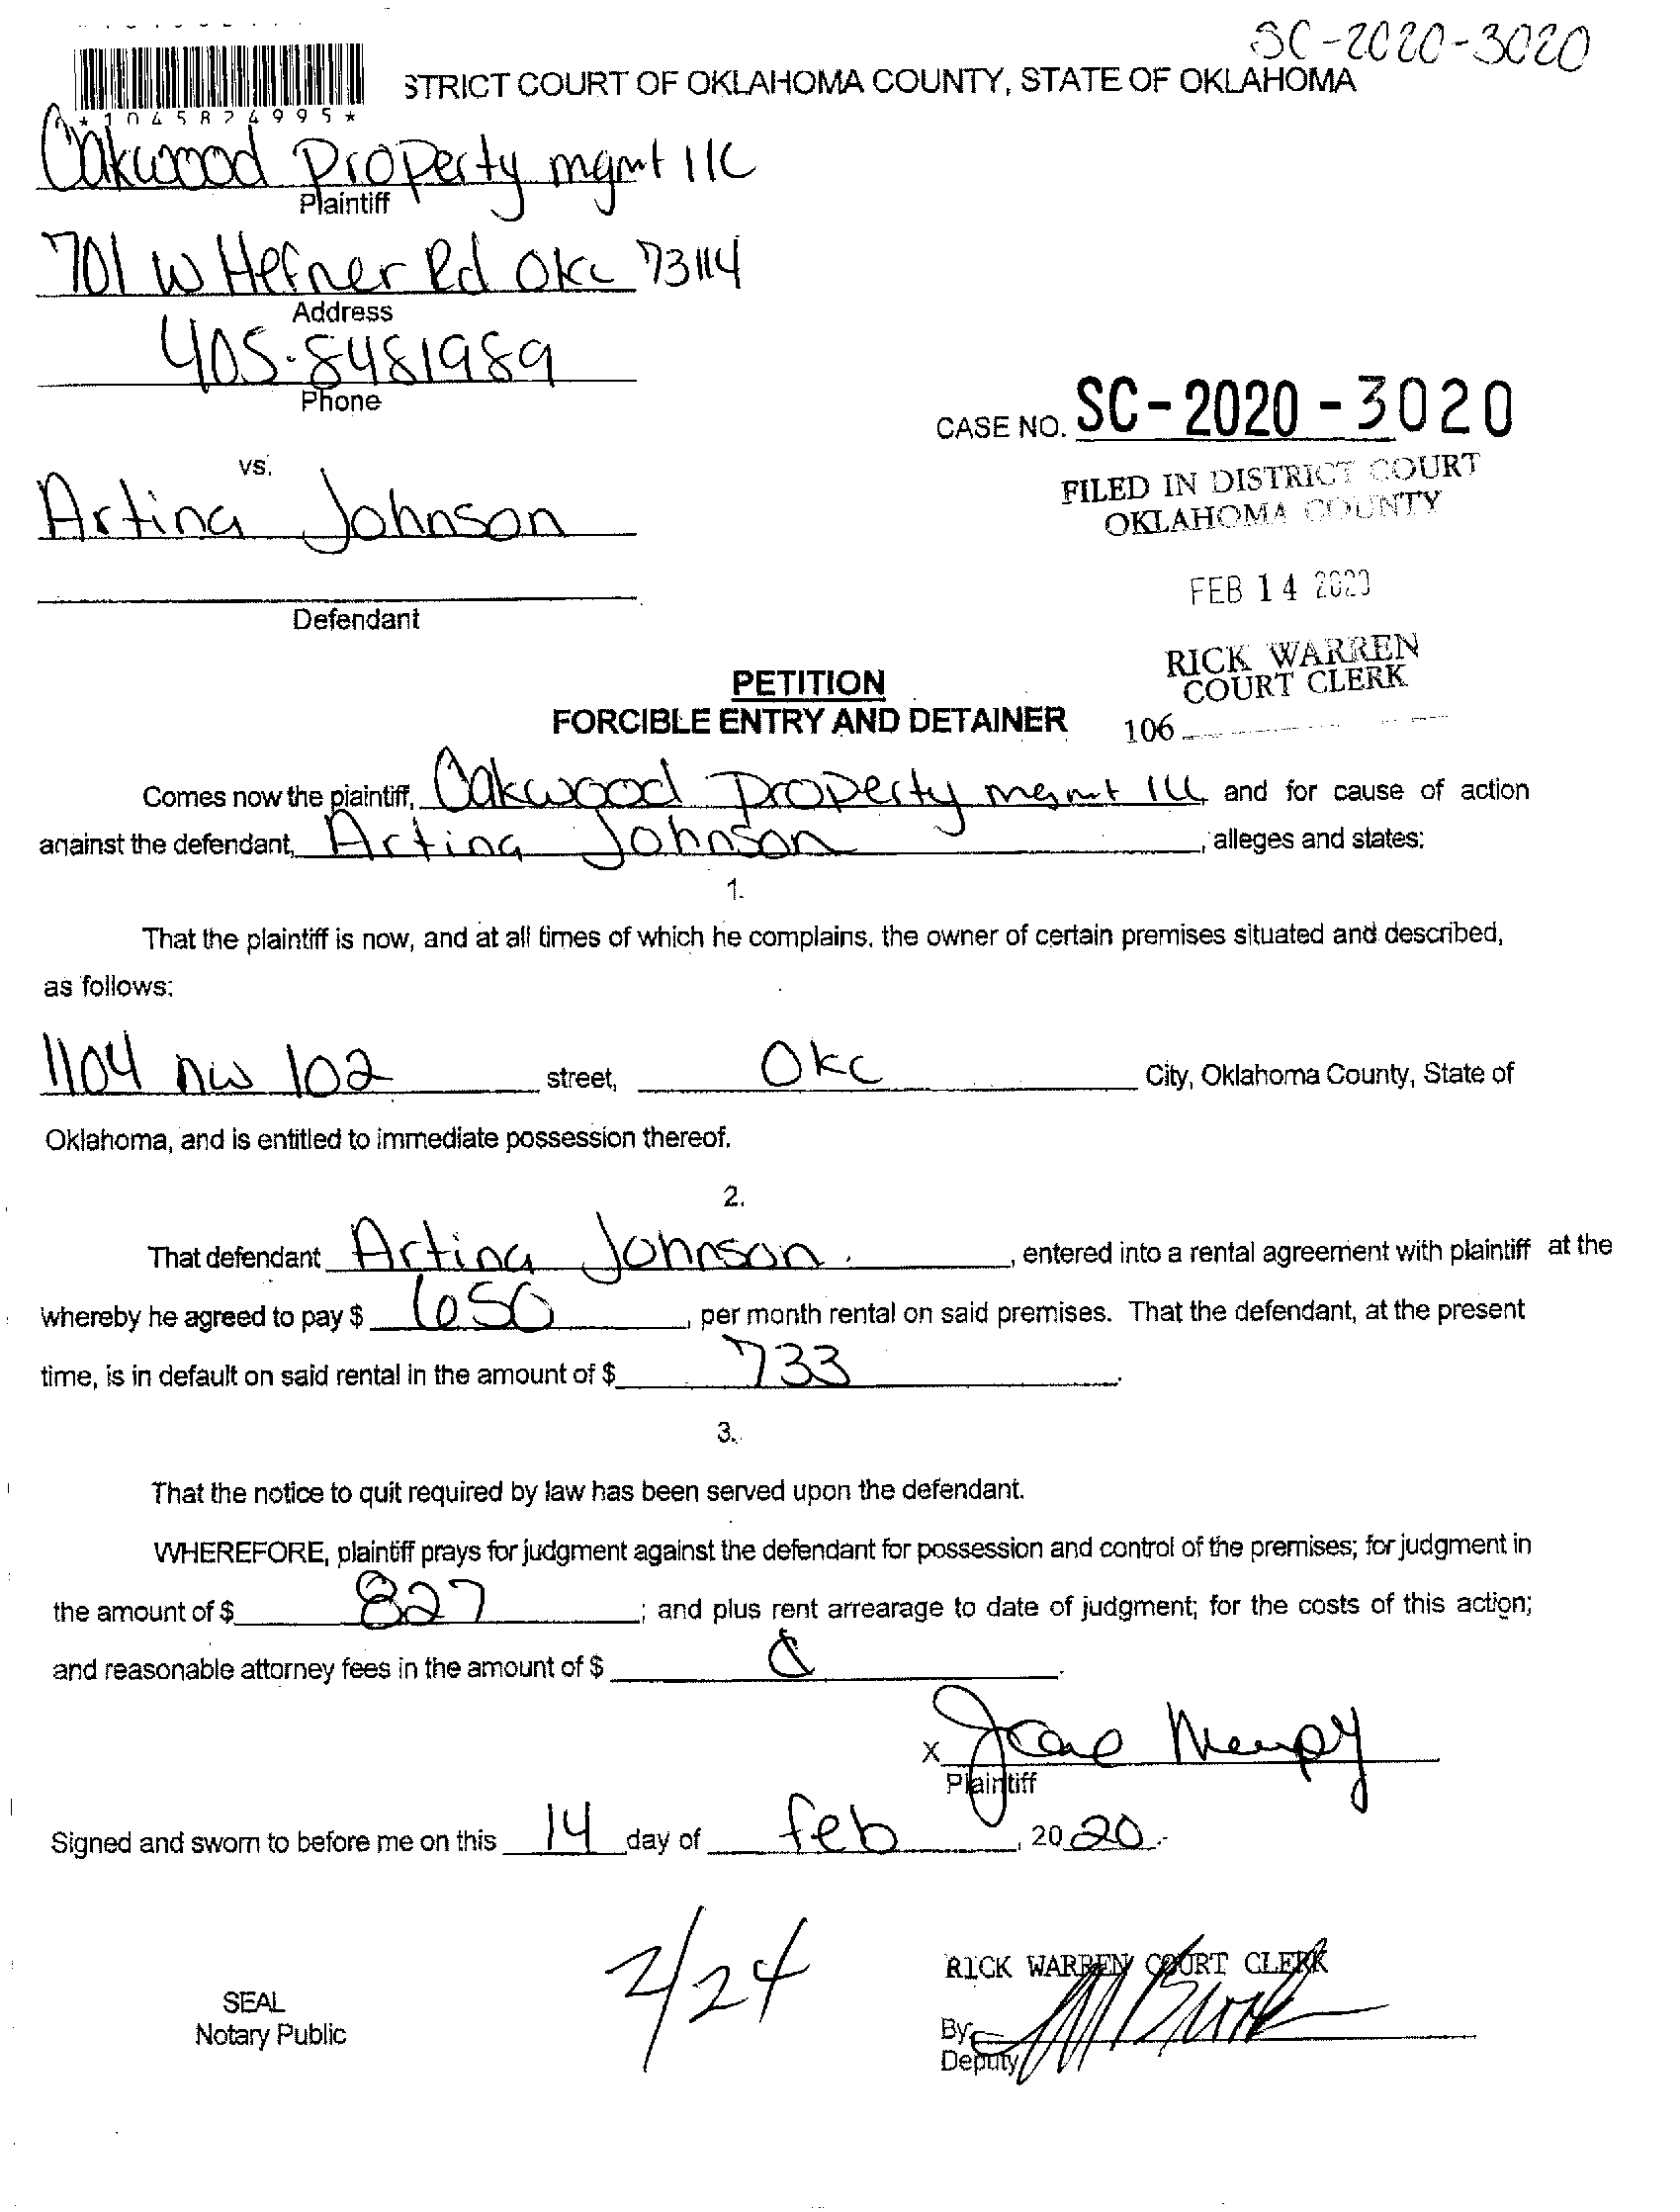 SC-2020-3020
STRICT COURT OF OKLAHOMA COUNTY, STATE OF OKLAHOMA
*1045824995*
Oakwood Property mgmt llc
Plaintiff
701 W Hefner Rd Okc 73114
Address
405-8481989
Phone
CASE NO. SC-2020-3020
vs.
FILED IN DISTRICT COURT
OKLAHOMA COUNTY
Artina Johnson
FEB 14 2020
Defendant
RICK WARREN
COURT CLERK
106
PETITION
FORCIBLE ENTRY AND DETAINER
Comes now the plaintiff, Oakwood Property mgmt llc and for cause of action
against the defendant, Artina Johnson, alleges and states:
1.
That the plaintiff is now, and at all times of which he complains, the owner of certain premises situated and described,
as follows:
1104 nw 102 street, Okc City, Oklahoma County, State of
Oklahoma, and is entitled to immediate possession thereof.
2.
That defendant Artina Johnson, entered into a rental agreement with plaintiff at the
whereby he agreed to pay $ 650, per month rental on said premises. That the defendant, at the present
time, is in default on said rental in the amount of $ 733.
3.
That the notice to quit required by law has been served upon the defendant.
WHEREFORE, plaintiff prays for judgment against the defendant for possession and control of the premises; for judgment in
the amount of $ 827; and plus rent arrearage to date of judgment; for the costs of this action;
and reasonable attorney fees in the amount of $
X
Plaintiff
Signed and sworn to before me on this 14 day of feb, 2020.
2/24
RICK WARREN COURT CLERK
SEAL
Notary Public
By
Deputy